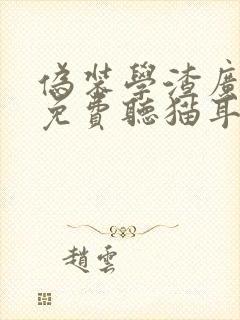 偽裝學渣廣
免費聽猫耳
趙雲